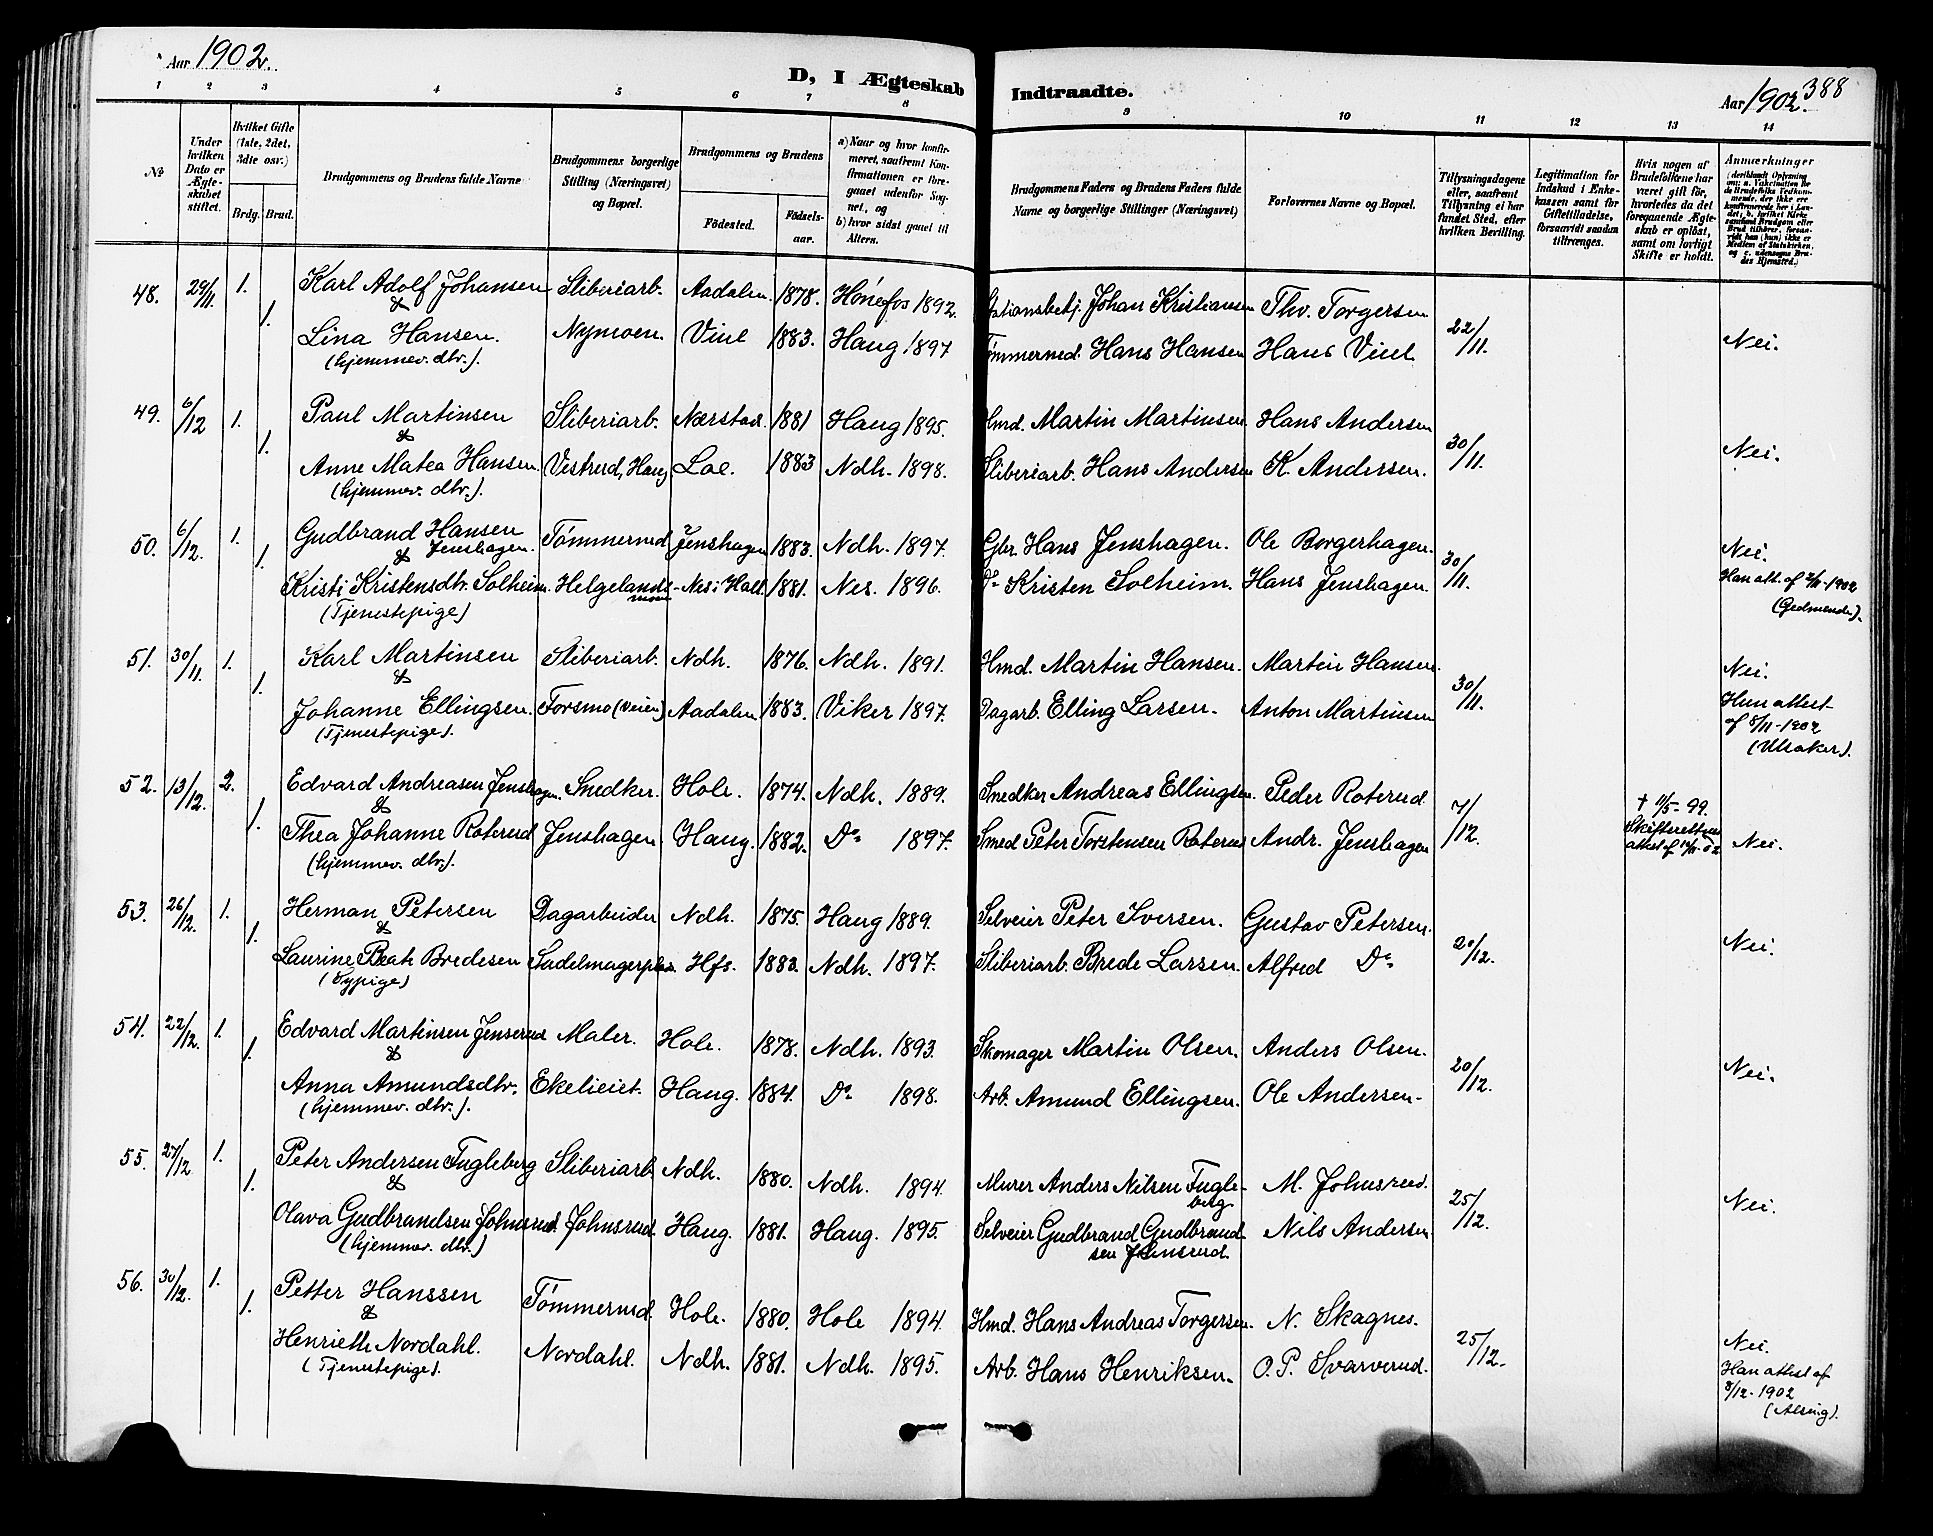 Aar 1902.
D, I Ægteskab Indtraadte.
Aar 1902. 388
1 2 3 4 5 6 7 8 9 10 11 12 13 14
No
Under hvilken Dato er Ægteskabet stiftet.
Hvilket Gifte (1ste, 2det, 3die osv.)
Brdg. Brud.
Brudgommens og Brudens fulde Navne
Brudgommens borgerlige Stilling (Næringsvei) og Bopæl.
Brudgommens og Brudens
Fødested. Fødselsaar.
a) Naar og hvor konfirmeret, saafremt Konfirmationen er foregaaet udenfor Sognet, og
b) hvor sidst gaaet til Alters.
Brudgommens Faders og Brudens Faders fulde Navne og borgerlige Stillinger (Næringsvei)
Forlovernes Navne og Bopæl.
Tillysningsdagene eller, saafremt Tillysning ei har fundet Sted, efter hvilken Bevilling.
Legitimation for Indskud i Enkekassen samt for Giftetilladelse, forsaavidt saadan tiltrænges.
Hvis nogen af Brudefolkene har været gift før, hvorledes da det foregaaende Ægteskab er opløst, samt om lovligt Skifte er holdt.
Anmærkninger
48. 29/11. 1. Karl Adolf Johansen Sliberiarb. Aadalen. 1878. Hönefos 1892. Stationsbetj. Johan Kristiansen Thv. Torgersen
&
1. Lina Hansen. Nymoen. Viul 1883. Haug 1897 Tømmermd. Hans Hansen Hans Viul 22/11. Nei.
(hjemmev. dtr.).
49. 6/12 1. Paul Martinsen Sliberiarb. Nærstad. 1881 Haug 1895. Hmd. Martin Martinsen. Hans Andersen
&
1. Anne Matea Hansen Vestrud, Haug Loe. 1883 Ndh. 1898. Sliberiarb. Hans Andersen K. Andersen. 30/11. Nei.
(hjemmev. dtr.).
50. 6/12. 1. Gudbrand Hansen Tömmermd Jenshagen 1883. Ndh. 1897. Gbr. Hans Jenshagen. Ole Borgerhagen. Nei.
& Jenshagen.
1. Kristi Kristensdtr. Solheim. Helgelandsmoen - Nes i Hall. 1881. Nes. 1896. Do Kristen Solheim. Hans Jenshagen. 30/11. Han att. af 2/11-1902
(Tjenestepige) (Gudmundr.).
51. 30/11. 1. Karl Martinsen Sliberiarb. Ndh. 1876. Ndh. 1891. Hmd. Martin Hansen. Martin Hansen. Nei.
&
1. Johanne Ellingsen. Forsmo (Veien) Aadalen 1883. Viker 1897. Dagarb. Elling Larsen. Anton Martinsen 30/11. Hun attest
(Tjenestepige). af 8/11-1902
(Ulsaker).
52. 13/12. 2. Edvard Andreasen Jenshagen. Snedker. Hole. 1874. Ndh. 1889. Snedker Andreas Ellingsen. Peder Roterud
&
1. Thea Johanne Roterud Jenshagen Haug. 1882. Do 1897. Smed Peter Torstensen Roterud Andr. Jenshagen 7/12. Nei.
(hjemmev. dtr.).
53. 26/12. 1. Herman Petersen Dagarbeider Ndh. 1875. Haug 1889. Selveier Peter Iversen. Gustav Petersen.
&
1. Laurine Beate Bredesen Sadelmagerplas Hfs. 1883. Ndh. 1897. Sliberiarb. Brede Larsen. Alfred Do 20/12. Nei.
(Sypige)
54. 22/12. 1. Edvard Martinsen Jenserud Maler. Hole. 1878. Ndh. 1893. Skomager Martin Olsen. Anders Olsen.
&
1. Anna Amundsdtr. Ekelieiet. Haug. 1884. Do 1898. Arb. Amund Ellingsen. Ole Andersen. 20/12. Nei.
(hjemmev. dtr.).
55. 27/12. 1. Peter Andersen Fugleberg Sliberiarb. Ndh. 1880. Ndh. 1894. Murer Anders Nilsen Fugleberg M. Johnsrud.
&
1. Olava Gudbrandsen Johnsrud. Johnsrud. Haug. 1881. Haug. 1895. Selveier Gudbrand Gudbrandsen Johnsrud. Nils Andersen 25/12. Nei.
(hjemmev. dtr.)
56. 30/12. 1. Petter Hanssen Tömmermd. Hole. 1880. Hole 1894. Hmd. Hans Andreas Torgersen. N. Skagnes.
&
1. Henriette Nordahl. Nordahl. Ndh. 1881. Ndh. 1895. Arb. Hans Henriksen. O. P. Svarverud. 25/12. Nei.
(Tjenestepige). Han attest af
8/12-1902